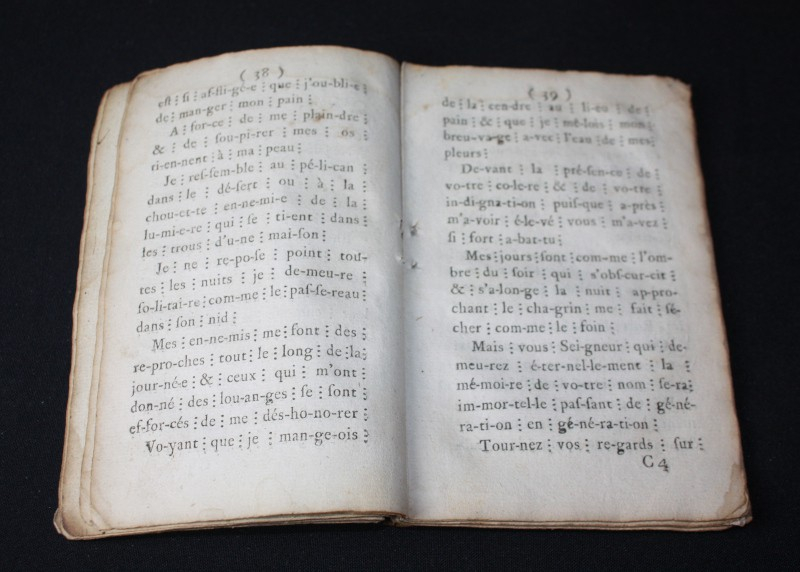 ( 38 )
eſt ⁝ ſi ⁝ aſ-fli-gé-e ⁝ que ⁝ j'ou-bli-e
de ⁝ man-ger ⁝ mon ⁝ pain ⁝
A ⁝ for-ce ⁝ de ⁝ me ⁝ plain-dre
& ⁝ de ⁝ ſou-pi-rer ⁝ mes ⁝ os
ti-en-nent ⁝ à ⁝ ma ⁝ peau ⁝
Je ⁝ reſ-ſem-ble ⁝ au ⁝ pé-li-can
dans ⁝ le ⁝ dé-ſert ⁝ ou ⁝ à ⁝ la
chou-et-te ⁝ en-ne-mi-e ⁝ de ⁝ la
lu-mi-e-re ⁝ qui ⁝ ſe ⁝ ti-ent ⁝ dans
les ⁝ trous ⁝ d'u-ne ⁝ mai-ſon ⁝
Je ⁝ ne ⁝ re-po-ſe ⁝ point ⁝ tou-
tes ⁝ les ⁝ nuits ⁝ je ⁝ de-meu-re
ſo-li-tai-re ⁝ com-me ⁝ le ⁝ paſ-ſe-reau
dans ⁝ ſon ⁝ nid ⁝
Mes ⁝ en-ne-mis ⁝ me ⁝ font ⁝ des
re-pro-ches ⁝ tout ⁝ le ⁝ long ⁝ de ⁝ la
jour-né-e ⁝ & ⁝ ceux ⁝ qui ⁝ m'ont
don-né ⁝ des ⁝ lou-an-ges ⁝ ſe ⁝ ſont
ef-for-cés ⁝ de ⁝ me ⁝ dés-ho-no-rer ⁝
Vo-yant ⁝ que ⁝ je ⁝ man-ge-ois ⁝
( 39 )
de ⁝ la ⁝ cen-dre ⁝ au ⁝ li-eu ⁝ de ⁝
pain ⁝ & ⁝ que ⁝ je ⁝ mê-lois ⁝ mon ⁝
breu-va-ge ⁝ a-vec ⁝ l'eau ⁝ de ⁝ mes
pleurs ⁝
De-vant ⁝ la ⁝ pré-ſen-ce ⁝ de
vo-tre ⁝ co-le-re ⁝ & ⁝ de ⁝ vo-tre
in-di-gna-ti-on ⁝ puiſ-que ⁝ a-près
m'a-voir ⁝ é-le-vé ⁝ vous ⁝ m'a-vez
ſi ⁝ fort ⁝ a-bat-tu ⁝
Mes ⁝ jours ⁝ ſont ⁝ com-me ⁝ l'om-
bre ⁝ du ⁝ ſoir ⁝ qui ⁝ s'obſ-cur-cit
& ⁝ s'a-lon-ge ⁝ la ⁝ nuit ⁝ ap-pro-
chant ⁝ le ⁝ cha-grin ⁝ me ⁝ fait ⁝ ſé-
cher ⁝ com-me ⁝ le ⁝ foin ⁝
Mais ⁝ vous ⁝ Sei-gneur ⁝ qui ⁝ de-
meu-rez ⁝ é-ter-nel-le-ment ⁝ la ⁝
mé-moi-re ⁝ de ⁝ vo-tre ⁝ nom ⁝ ſe-ra ⁝
im-mor-tel-le ⁝ paſ-ſant ⁝ de ⁝ gé-né-
ra-ti-on ⁝ en ⁝ gé-né-ra-ti-on ⁝
Tour-nez ⁝ vos ⁝ re-gards ⁝ ſur ⁝
C 4